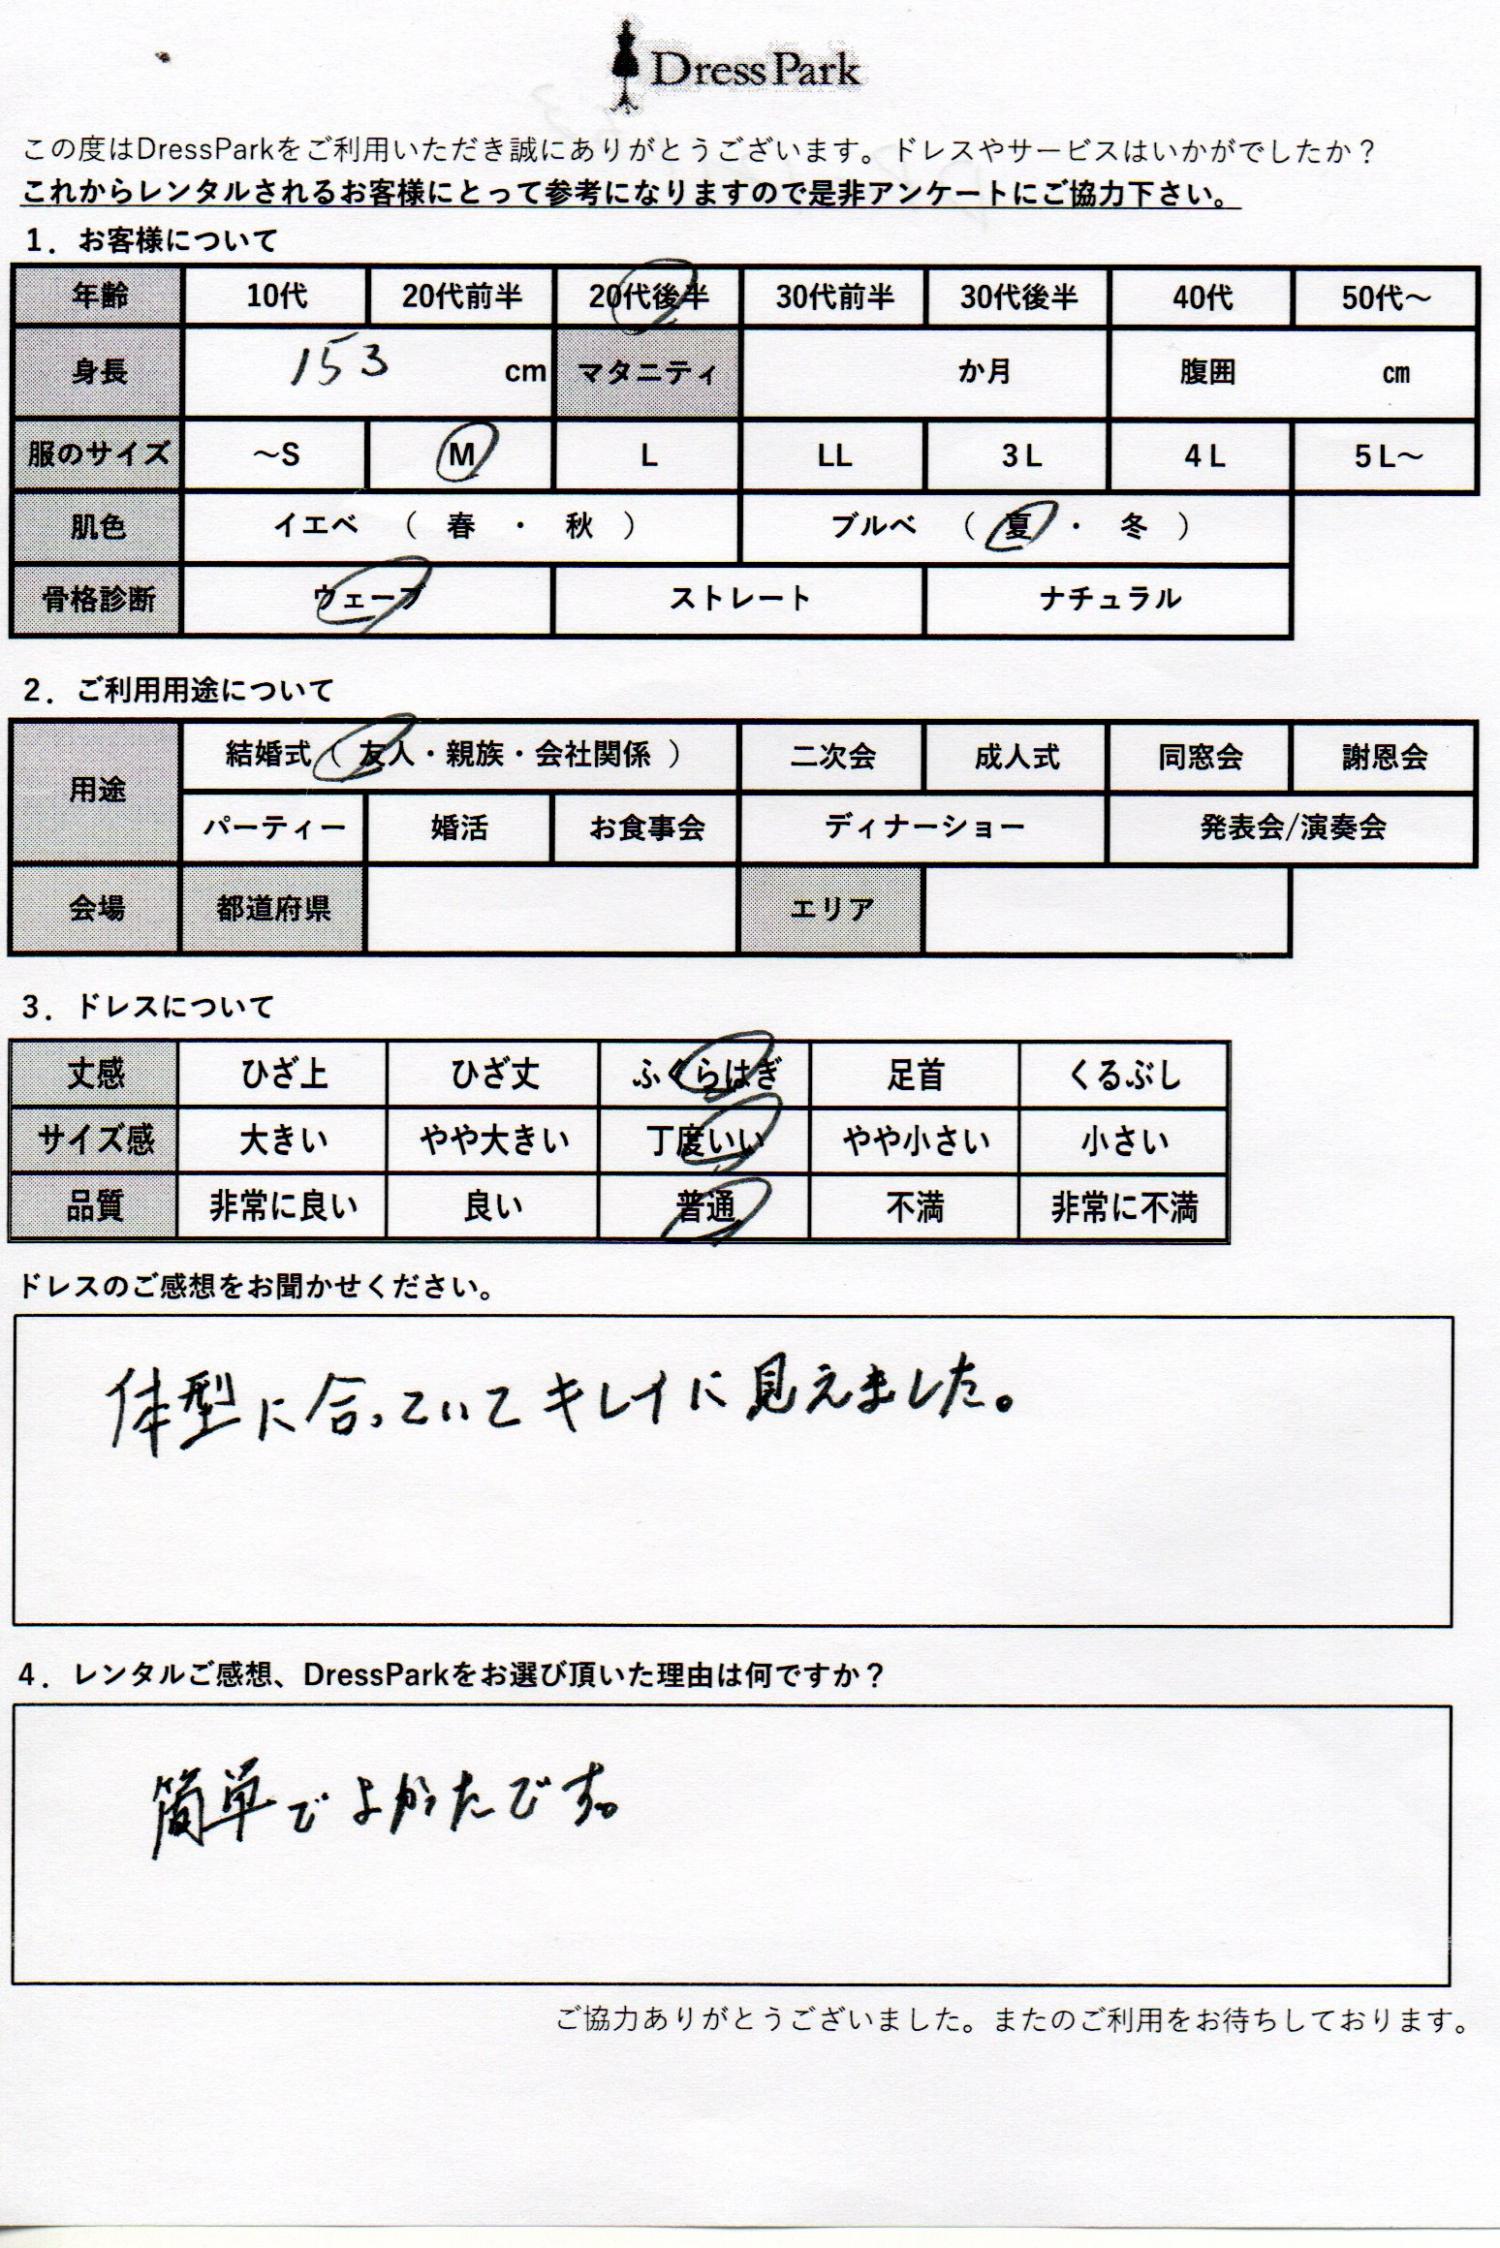 DressPark
この度はDressParkをご利用いただき誠にありがとうございます。ドレスやサービスはいかがでしたか？
これからレンタルされるお客様にとって参考になりますので是非アンケートにご協力下さい。
1．お客様について
年齢 10代 20代前半 20代後半 30代前半 30代後半 40代 50代～
身長 153 cm マタニティ か月 腹囲 ㎝
服のサイズ ～S M L LL 3L 4L 5L～
肌色 イエベ （ 春 ・ 秋 ） ブルベ （ 夏 ・ 冬 ）
骨格診断 ウェーブ ストレート ナチュラル
2．ご利用用途について
用途 結婚式（ 友人・親族・会社関係 ） 二次会 成人式 同窓会 謝恩会
パーティー 婚活 お食事会 ディナーショー 発表会/演奏会
会場 都道府県 エリア
3．ドレスについて
丈感 ひざ上 ひざ丈 ふくらはぎ 足首 くるぶし
サイズ感 大きい やや大きい 丁度いい やや小さい 小さい
品質 非常に良い 良い 普通 不満 非常に不満
ドレスのご感想をお聞かせください。
体型に合っていてキレイに見えました。
4．レンタルご感想、DressParkをお選び頂いた理由は何ですか？
簡単でよかったです。
ご協力ありがとうございました。またのご利用をお待ちしております。